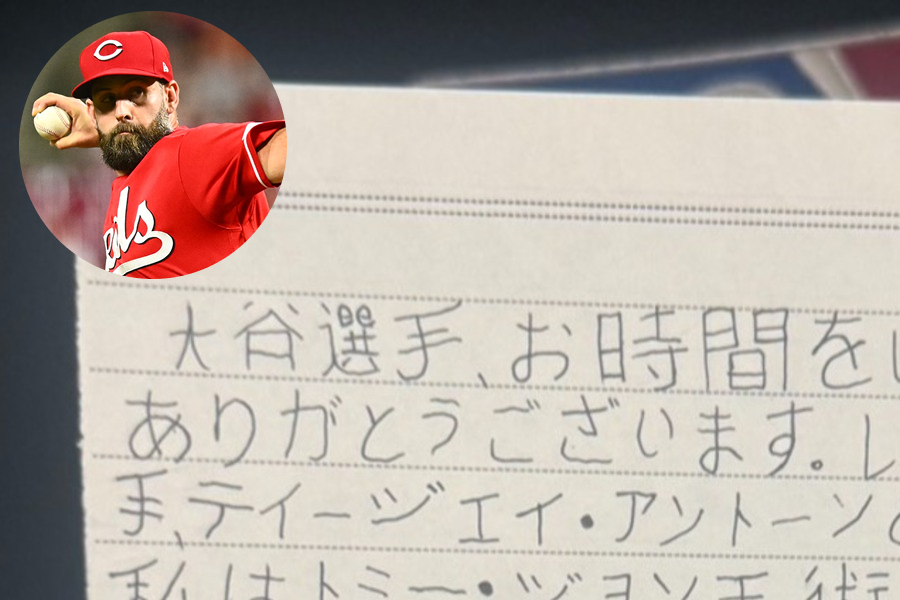 C
eds
大谷選手、お時間をい
ありがとうございます。レ
手、ティージェイ・アントーン
私はトミー・ジョン